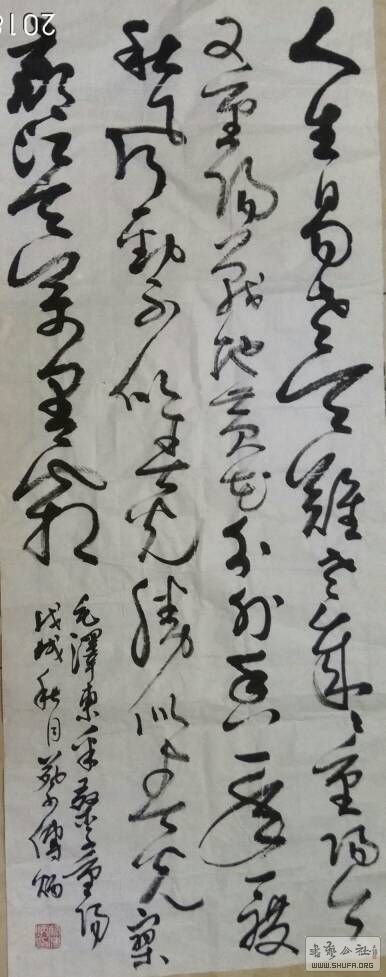 人生易老天難老歲〻重陽今
又重陽戰地黃花分外香一年一度
秋風勁不似春光勝似春光寥
廓江天萬里霜
毛澤東采桑子重陽
戊戌秋月
書藝公社
WWW.SHUFA.ORG